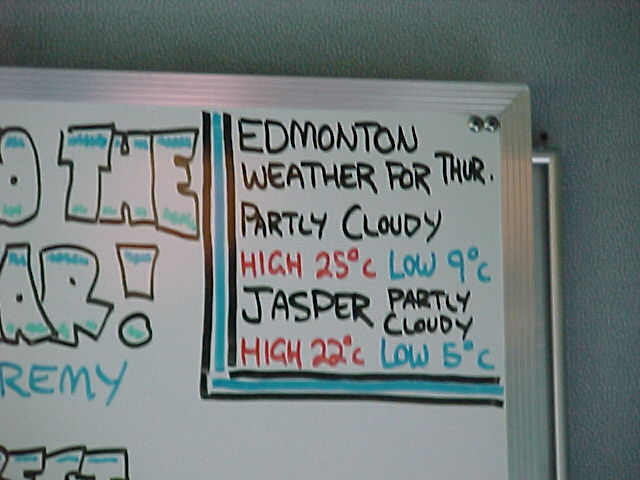 THE
EDMONTON
WEATHER FOR THUR.
PARTLY CLOUDY
HIGH 25°C LOW 9°C
JASPER PARTLY
CLOUDY
HIGH 22°C LOW 5°C
AR!
REMY